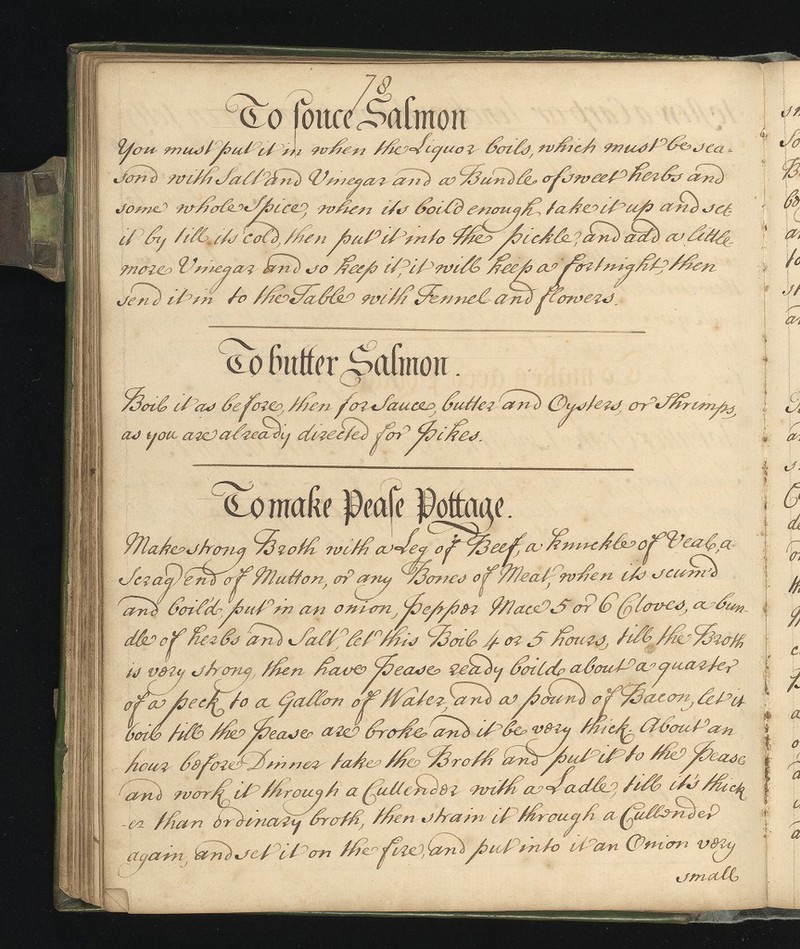 78
To souce Salmon
You must put it in when the Liquor boils, which must be sea-
sond with Salt and Vinegar and a Bundle of sweet herbs and
some whole Spice, when its boild enough take it up and set
it by till its cold, then put it into the pickle, and add a little
more Vinegar and so keep it, it will keep a fortnight, then
send it in to the Table with Fennel and flowers.
To butter Salmon.
Boil it as before, then for Sauce, butter and Oysters, or Shrimps,
as you are already directed for Pikes.
To make Pease Pottage.
Make strong Broth with a Leg of Beef, a knuckle of Veal, a
Scrag end of Mutton, or any Bones of Meat, when its scum'd
and boil'd, put in an onion, Pepper Mace 5 or 6 Cloves, a bun-
dle of herbs and Salt, let this Boil 4 or 5 hours, till the Broth
is very strong, then have Pease ready boild, about a quarter
of a peck, to a Gallon of Water, and a pound of Bacon, let it
boil till the Pease are broke and it be very thick. About an
hour before Dinner take the Broth and put it to the Pease
and work it through a Cullender with a Ladle, till it's thick
-er than ordinary broth, then strain it through a Cullender
again, and set it on the fire, and put into it an Onion very
small